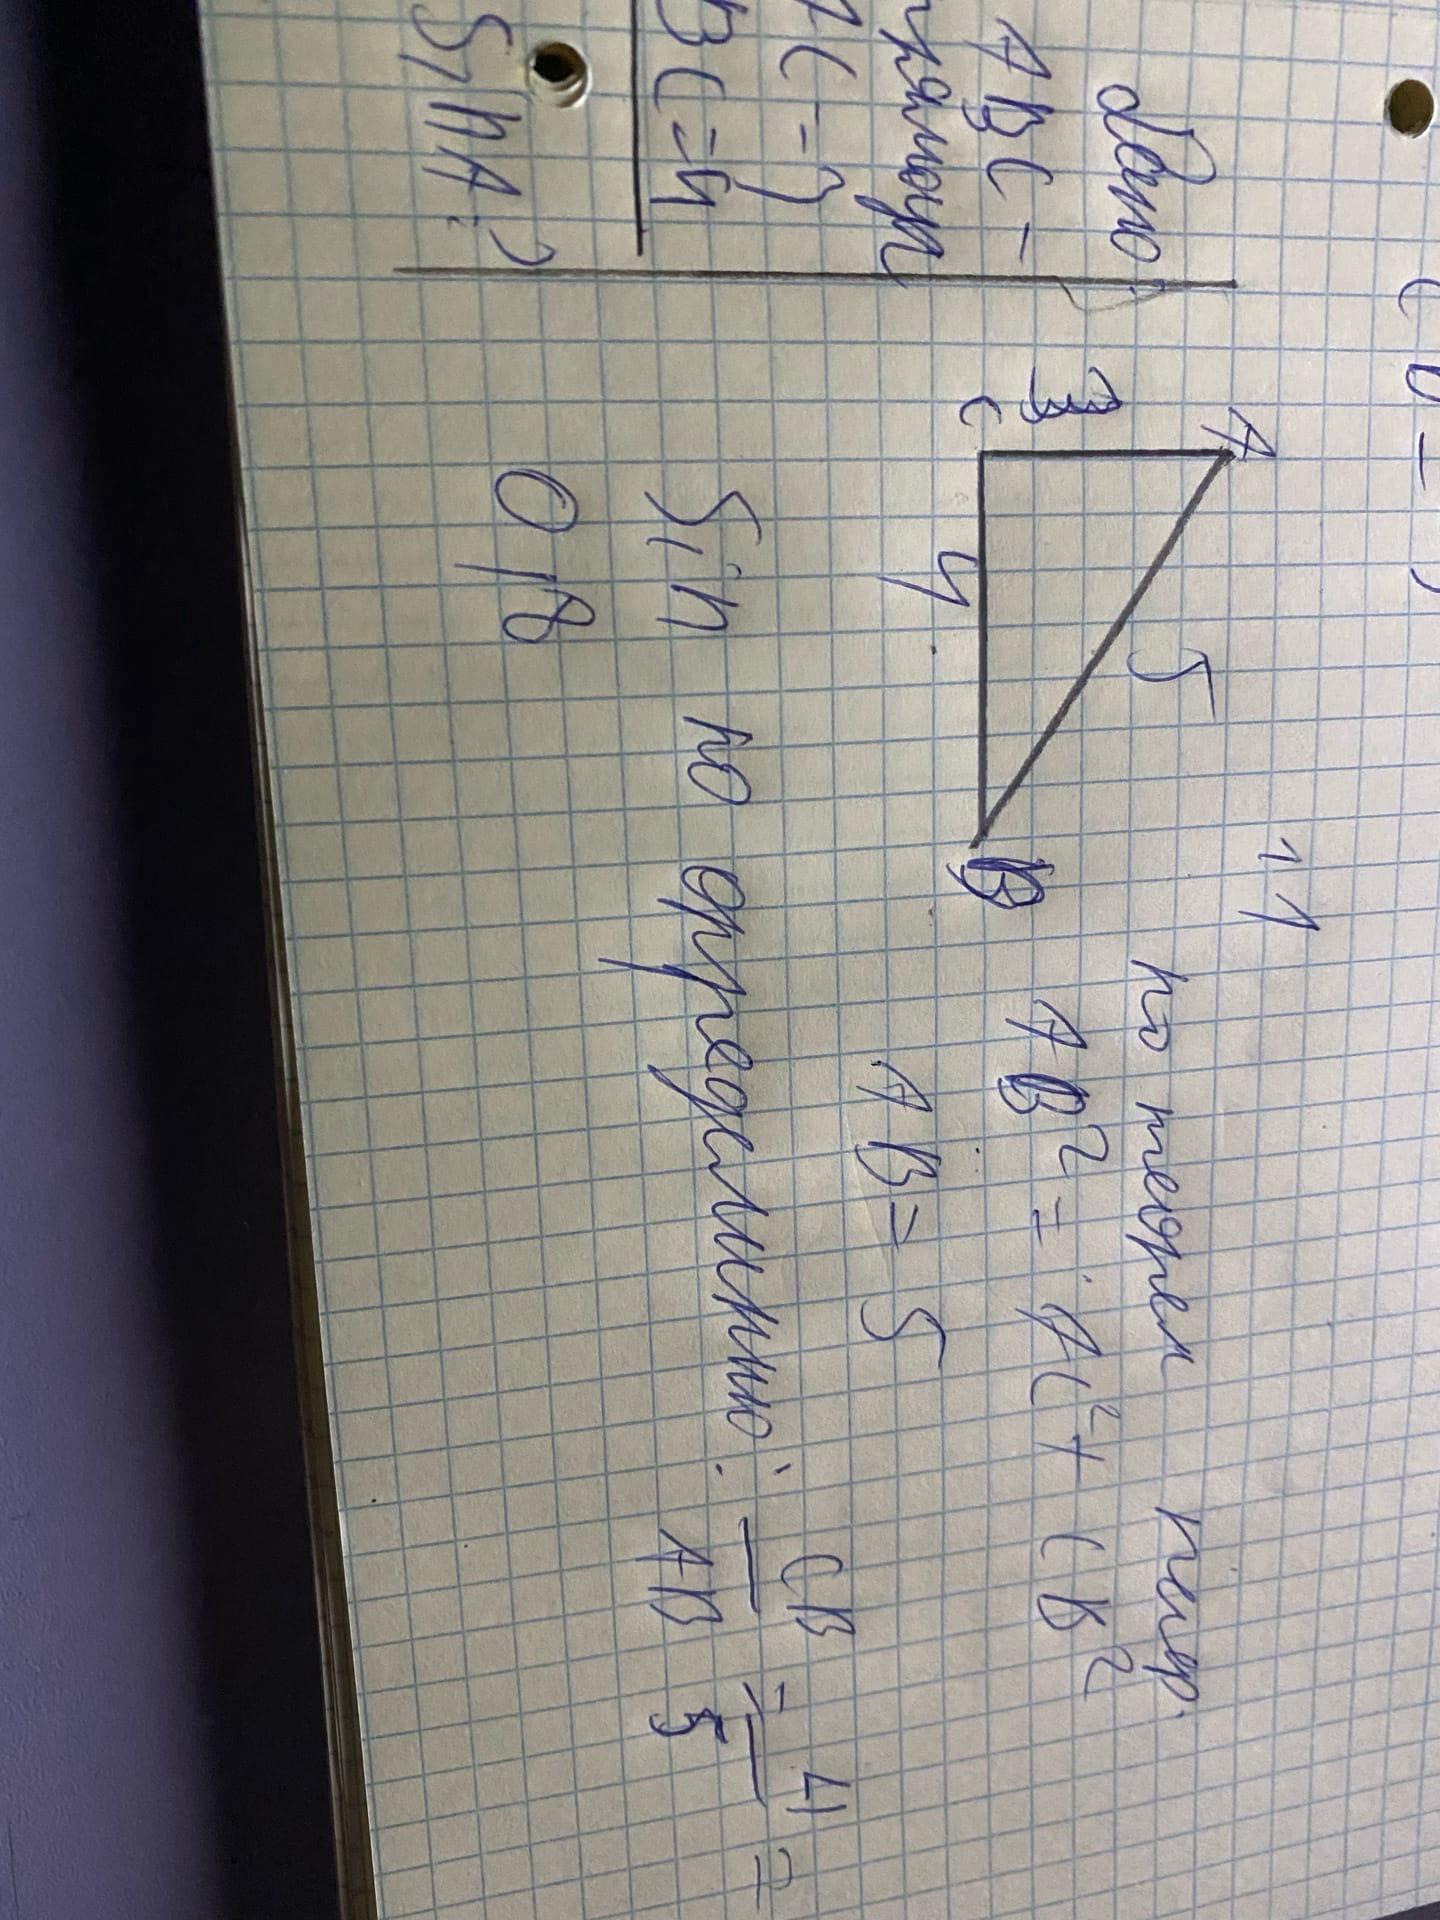 Дано:
ABC -
прямоуг
AC = 3
BC = 4
Sin A: ?
A
3
C
4
5
B
11
по теорем пифр.
AB² = AC² + CB²
AB = 5
Sin по определинию: CB/AB = 4/5 =
0,8